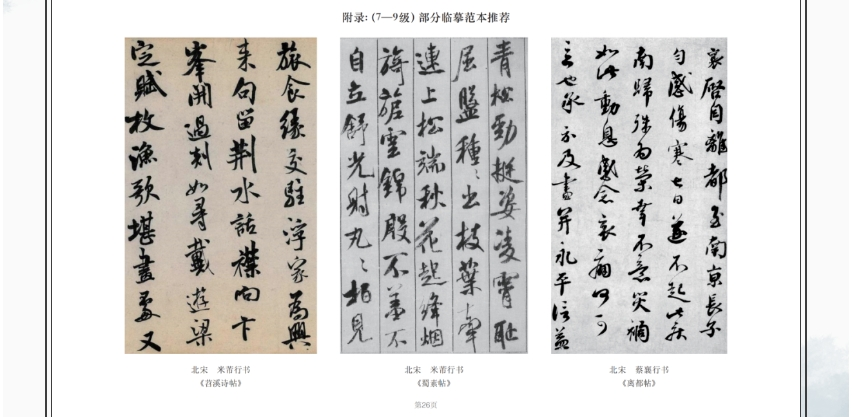 附录:(7—9级)部分临摹范本推荐
旅食缘交驻浮家为兴
来句留荆水话襟向卞
峰开过剡如寻戴游梁
定赋枚渔歌堪画处又
青松劲挺姿凌霄耻
屈盘种种出枝叶牵
连上松端秋花起绛烟
旖旎云锦殷不羞不
自立舒光射丸丸柏见
襄启自离都至南京长子
匀感伤寒七日遂不起此疾
南归殊为荣幸不意灾祸
如此动息感念哀痛何可
言也承示及书并永平信益
北宋 米芾行书
《苕溪诗帖》
北宋 米芾行书
《蜀素帖》
北宋 蔡襄行书
《离都帖》
第26页